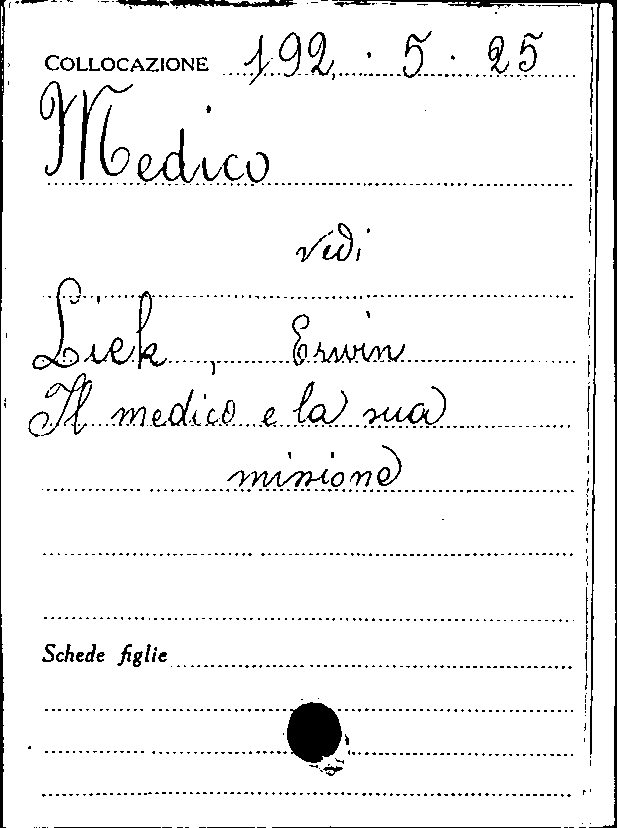 COLLOCAZIONE 192.5.25
Medico
vedi
Liek, Erwin
Il medico e la sua
missione
Schede figlie